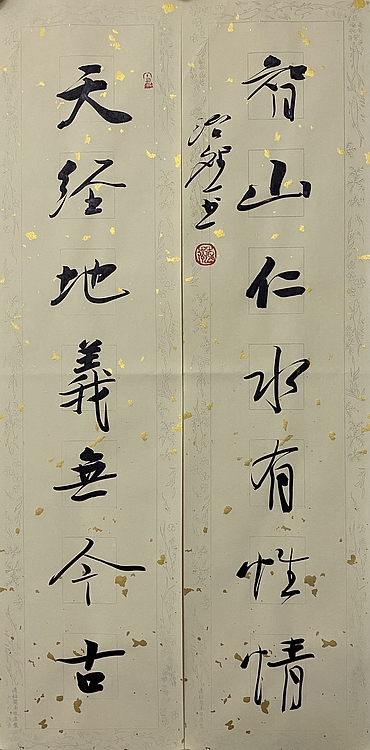 天经地義無今古
智山仁水有性情
书